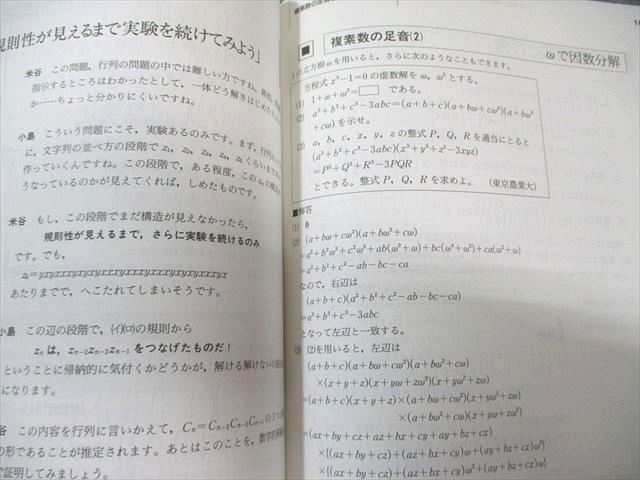 規則性が見えるまで実験を続けてみよう」
米谷 この問題,行列の問題の中では難しい方ですね。
指示するところはわかったとして,一体どう解きはじめたら
か……ちょっと分かりにくいですね。
小島 こういう問題にこそ,実験あるのみです。まず,行列
に,文字列の並べ方の段階で z₁, z₂, z₃, z₄, z₅ くらいまで
作っていくんですね。この段階で,ある程度,この zₙ の構造
うなっているのかが見えてくれば,しめたものです。
米谷 もし,この段階でまだ構造が見えなかったら,
規則性が見えるまで,さらに実験を続けるのみ
です。でも,
あたりまでで,へこたれてしまいそうです。
小島 この辺の段階で,(イ)(ロ)の規則から
zₙ は,zₙ₋₂zₙ₋₂zₙ₋₁ をつなげたものだ!
ということに帰納的に気付くかどうかが,解ける解けない
になります。
谷 この内容を行列に言いかえて,Cₙ=Cₙ₋₂Cₙ₋₂Cₙ₋₁の
の形であることが推定されます。あとはこのことを,数学的
で証明してみましょう。
複素数の足音
■ 複素数の足音(2)
ωで因数分解
1の立方根ωを用いると,さらに次のようなこともできます。
方程式 x³−1=0 の虚数解を ω, ω² とする。
(1) 1+ω+ω²=□ である。
(2) a³+b³+c³−3abc=(a+b+c)(a+bω+cω²)(a+bω²
+cω) を示せ。
(3) a, b, c, x, y, z の整式 P, Q, R を適当にとると
(a³+b³+c³−3abc)(x³+y³+z³−3xyz)
=P³+Q³+R³−3PQR
とできる。整式 P, Q, R を求めよ。 (東京農業大)
■解答
(1) 0
(2) (a+bω+cω²)(a+bω²+cω)
=a²+b²ω³+c²ω³+ab(ω²+ω)+bc(ω⁴+ω²)+ca(ω²+ω)
=a²+b²+c²−ab−bc−ca
なので,右辺は
(a+b+c)(a²+b²+c²−ab−bc−ca)
=a³+b³+c³−3abc
となって左辺と一致する。
(3) (2)を用いると,左辺は
(a+b+c)(a+bω+cω²)(a+bω²+cω)
×(x+y+z)(x+yω+zω²)(x+yω²+zω)
=(a+b+c)(x+y+z)×(a+bω+cω²)(x+yω²+zω)
×(a+bω²+cω)(x+yω+zω²)
=(ax+by+cz+az+bx+cy+ay+bz+cx)
×{(ax+by+cz)+(az+bx+cy)ω+(ay+bz+cx)ω²}
×{(ax+by+cz)+(az+bx+cy)ω²+(ay+bz+cx)ω}